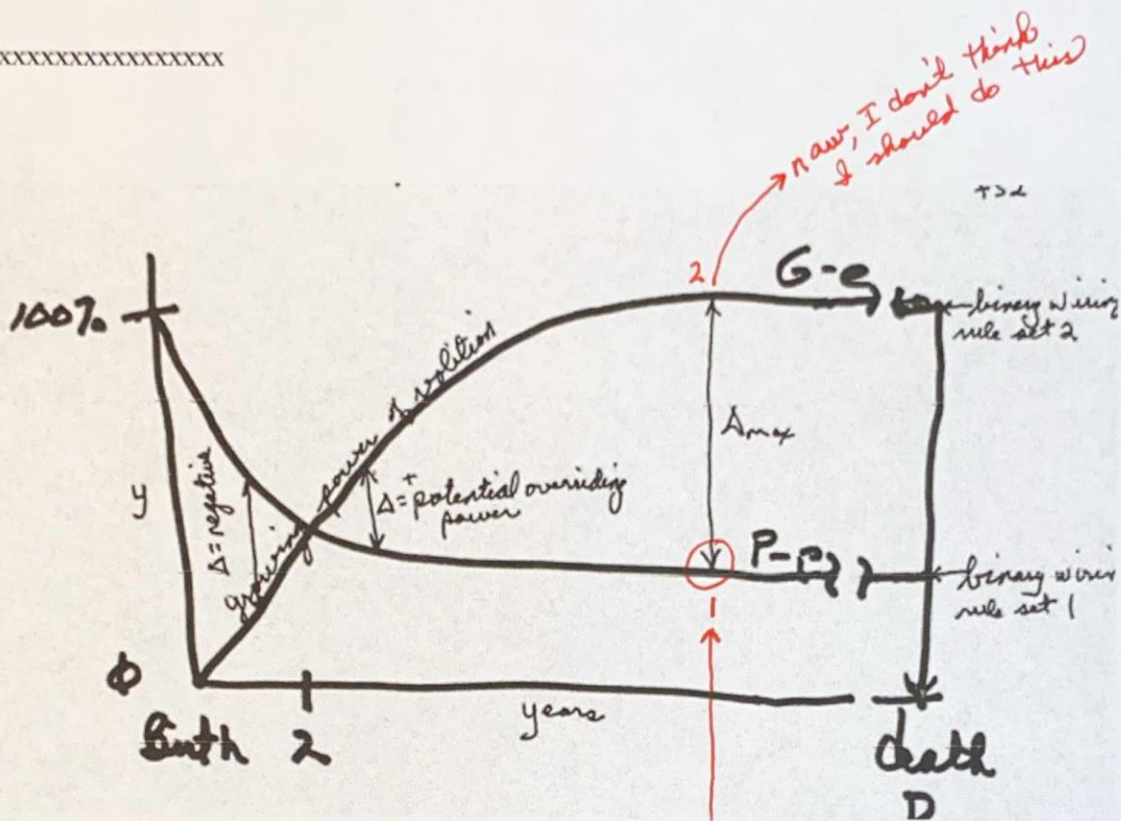 xxxxxxxxxxxxxxxx
naw, I don't think
I should do this
2
G-e
100%
binary wiring
rule set 2
growing power of volition
Δmax
y
Δ=negative
Δ=+potential overriding
power
P-P
binary wirin
rule set 1
1
Φ
years
Birth
2
death
D